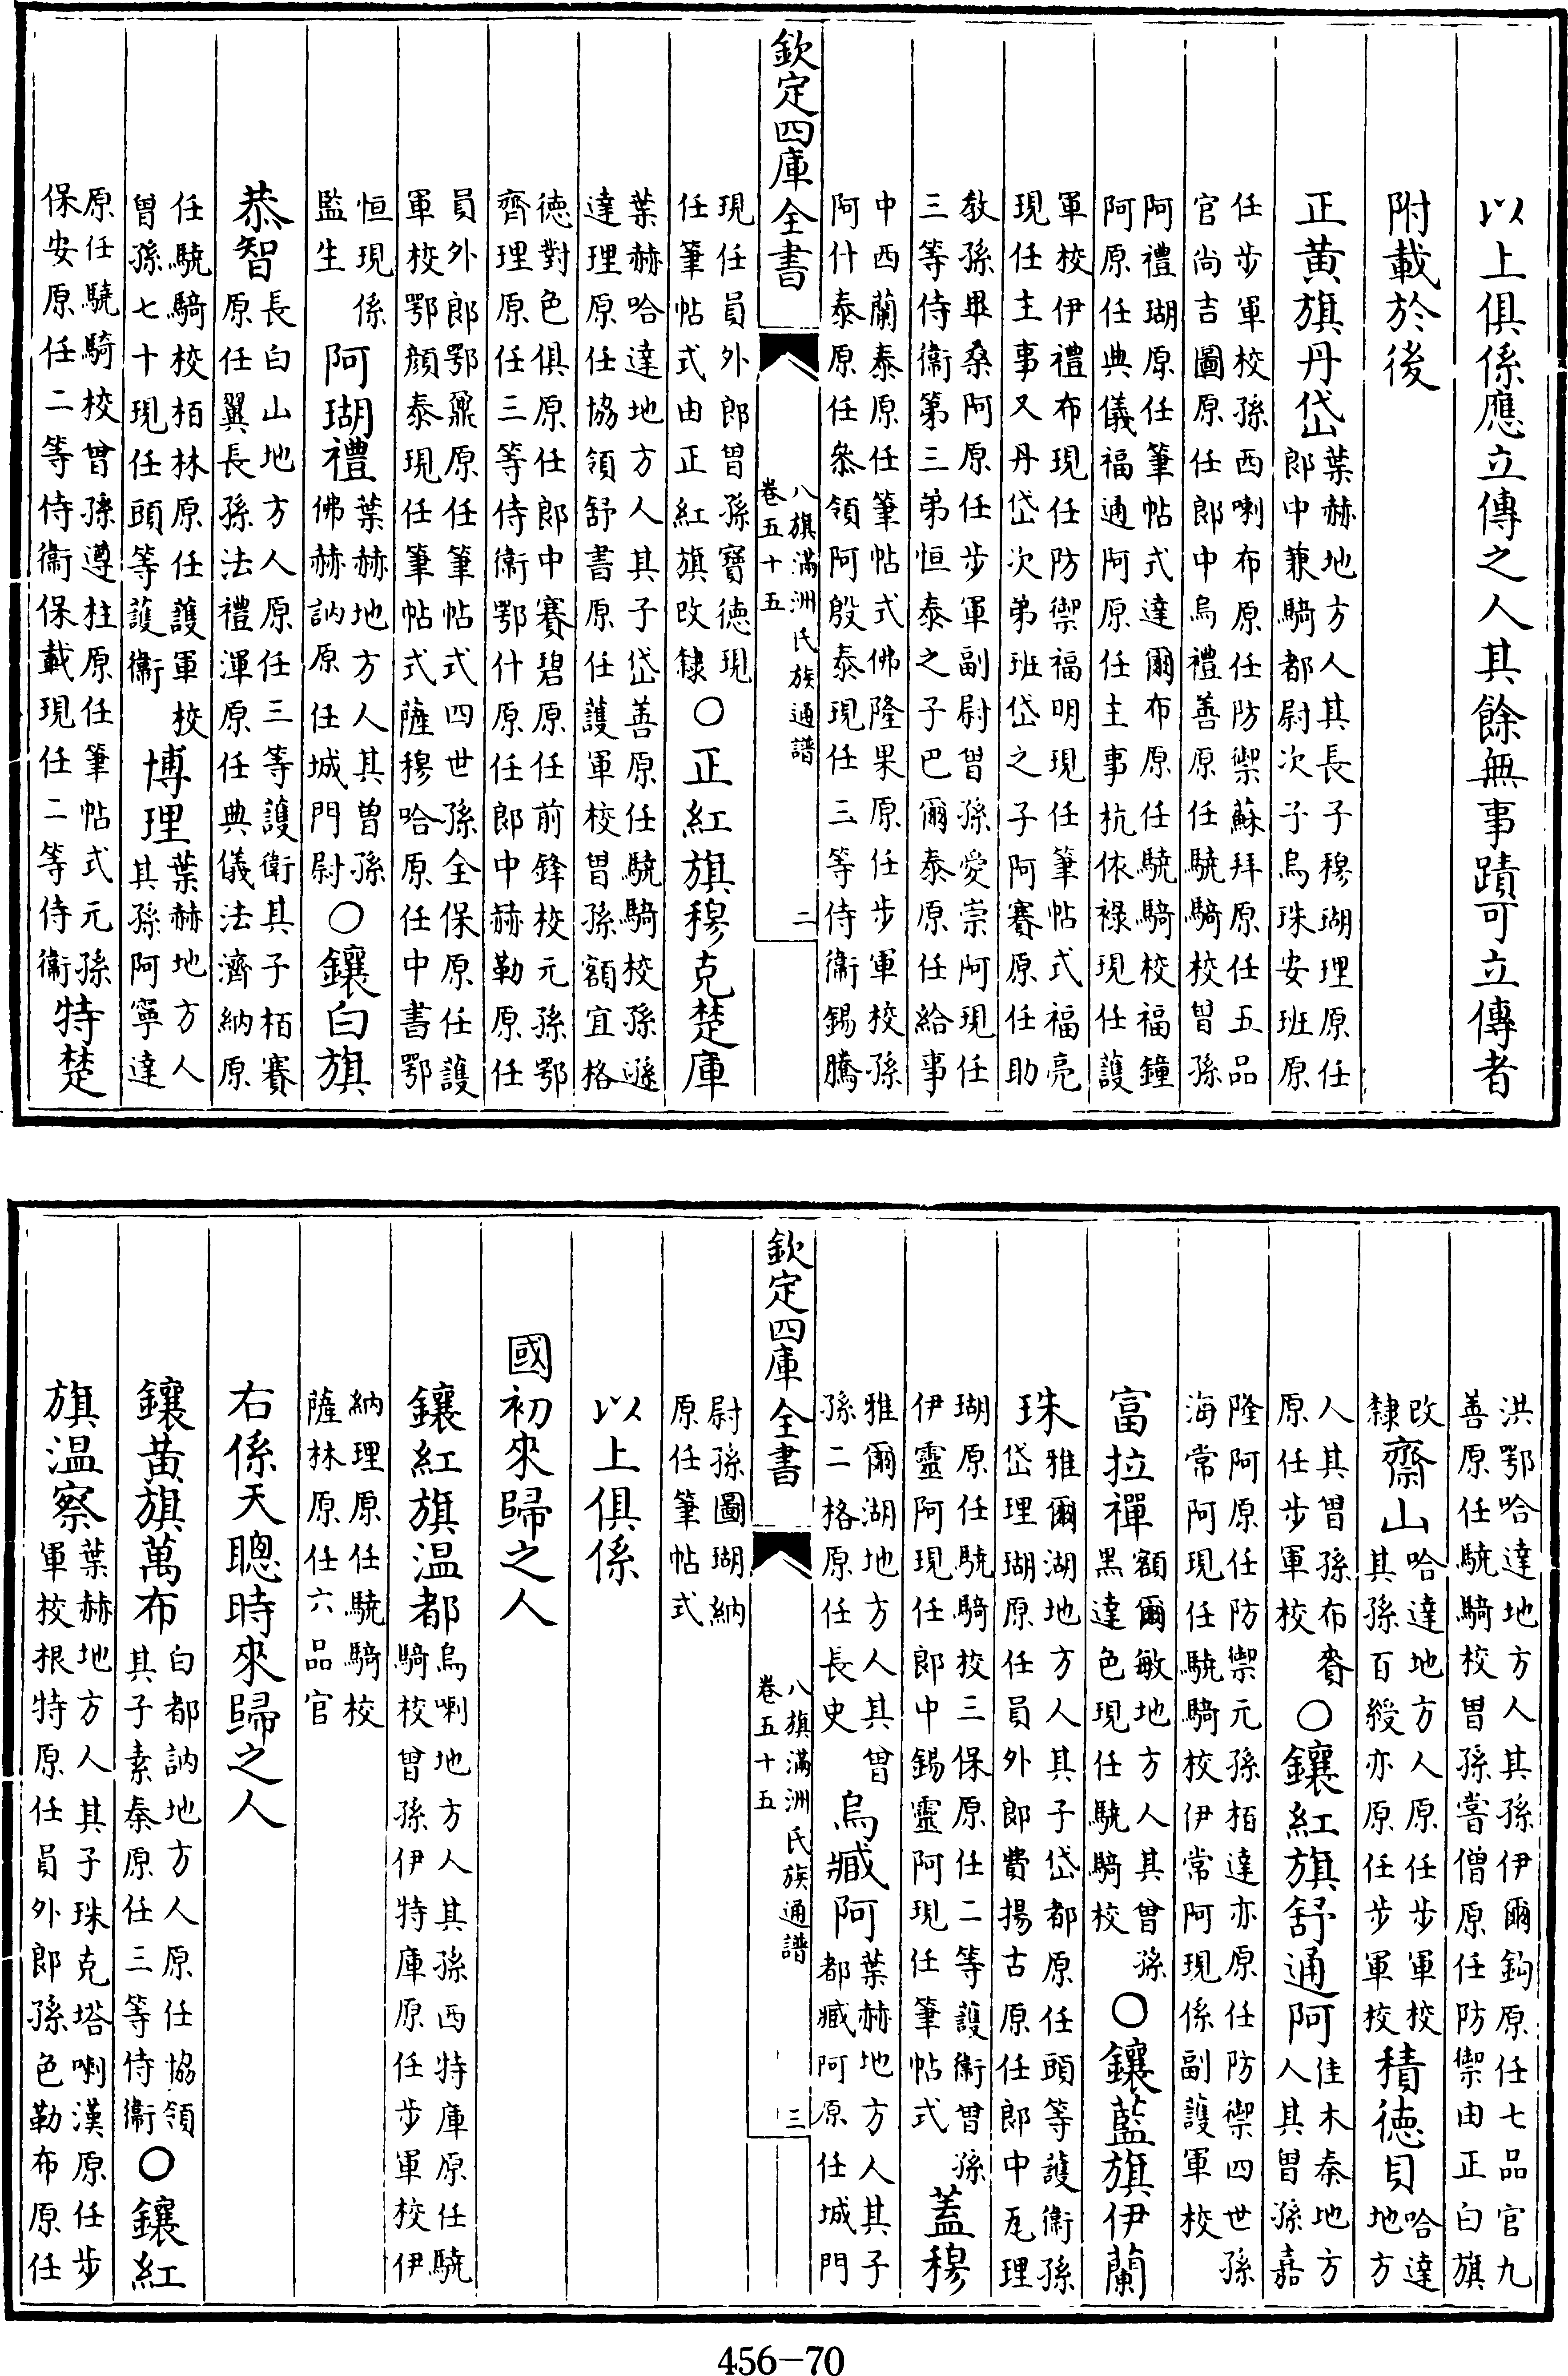 以上俱係應立傳之人其餘無事蹟可立傳者
附載於後
正黃旗丹岱葉赫地方人其長子穆瑚理原任
郎中兼騎都尉次子烏珠安班原
任步軍校孫西喇布原任防禦蘇拜原任五品
官尚吉圖原任郎中烏禮善原任驍騎校曾孫
阿禮瑚原任筆帖式達爾布原任驍騎校福鐘
阿原任典儀福通阿原任主事抗依祿現任護
軍校伊禮布現任防禦福明現任筆帖式福亮
現任主事又丹岱次弟班岱之子阿賽原任助
教孫畢桑阿原任步軍副尉曾孫愛崇阿現任
三等侍衞第三弟恒泰之子巴爾泰原任給事
中西蘭泰原任筆帖式佛隆果原任步軍校孫
阿什泰原任叅領阿殷泰現任三等侍衞錫騰
欽定四庫全書
八旗滿洲氏族通譜
卷五十五
二
現任員外郎曾孫寶德現
任筆帖式由正紅旗改隸
○正紅旗穆克楚庫
葉赫哈達地方人其子岱善原任驍騎校孫遜
達理原任協領舒書原任護軍校曾孫額宜格
德對色俱原任郎中賽碧原任前鋒校元孫鄂
齊理原任三等侍衞鄂什原任郎中赫勒原任
員外郎鄂鼐原任筆帖式四世孫全保原任護
軍校鄂顏泰現任筆帖式薩穆哈原任中書鄂
恒現係
監生
阿瑚禮葉赫地方人其曾孫
佛赫訥原任城門尉
○鑲白旗
恭智長白山地方人原任三等護衞其子栢賽
原任翼長孫法禮渾原任典儀法濟納原
任驍騎校栢林原任護軍校
曾孫七十現任頭等護衞
博理葉赫地方人
其孫阿寧達
原任驍騎校曾孫遵柱原任筆帖式元孫
保安原任二等侍衞保載現任二等侍衞
特楚
洪鄂哈達地方人其孫伊爾鈎原任七品官九
善原任驍騎校曾孫耆僧原任防禦由正白旗
改
隸
齋山哈達地方人原任步軍校
其孫百綬亦原任步軍校
積德貝哈達
地方
人其曾孫布睿
原任步軍校
○鑲紅旗舒通阿佳木秦地方
人其曾孫嘉
隆阿原任防禦元孫栢達亦原任防禦四世孫
海常阿現任驍騎校伊常阿現係副護軍校
富拉禪額爾敏地方人其曾孫
黑達色現任驍騎校
○鑲藍旗伊蘭
珠雅爾湖地方人其子岱都原任頭等護衞孫
岱理瑚原任員外郎費揚古原任郎中瓦理
瑚原任驍騎校三保原任二等護衞曾孫
伊靈阿現任郎中錫靈阿現任筆帖式
蓋穆
雅爾湖地方人其曾
孫二格原任長史
烏臧阿葉赫地方人其子
都臧阿原任城門
欽定四庫全書
八旗滿洲氏族通譜
卷五十五
三
尉孫圖瑚納
原任筆帖式
以上俱係
國初來歸之人
鑲紅旗温都烏喇地方人其孫西特庫原任驍
騎校曾孫伊特庫原任步軍校伊
納理原任驍騎校
薩林原任六品官
右係天聰時來歸之人
鑲黃旗萬布白都訥地方人原任協領
其子素秦原任三等侍衞
○鑲紅
旗温察葉赫地方人其子珠克塔喇漢原任步
軍校根特原任員外郎孫色勒布原任
456-70